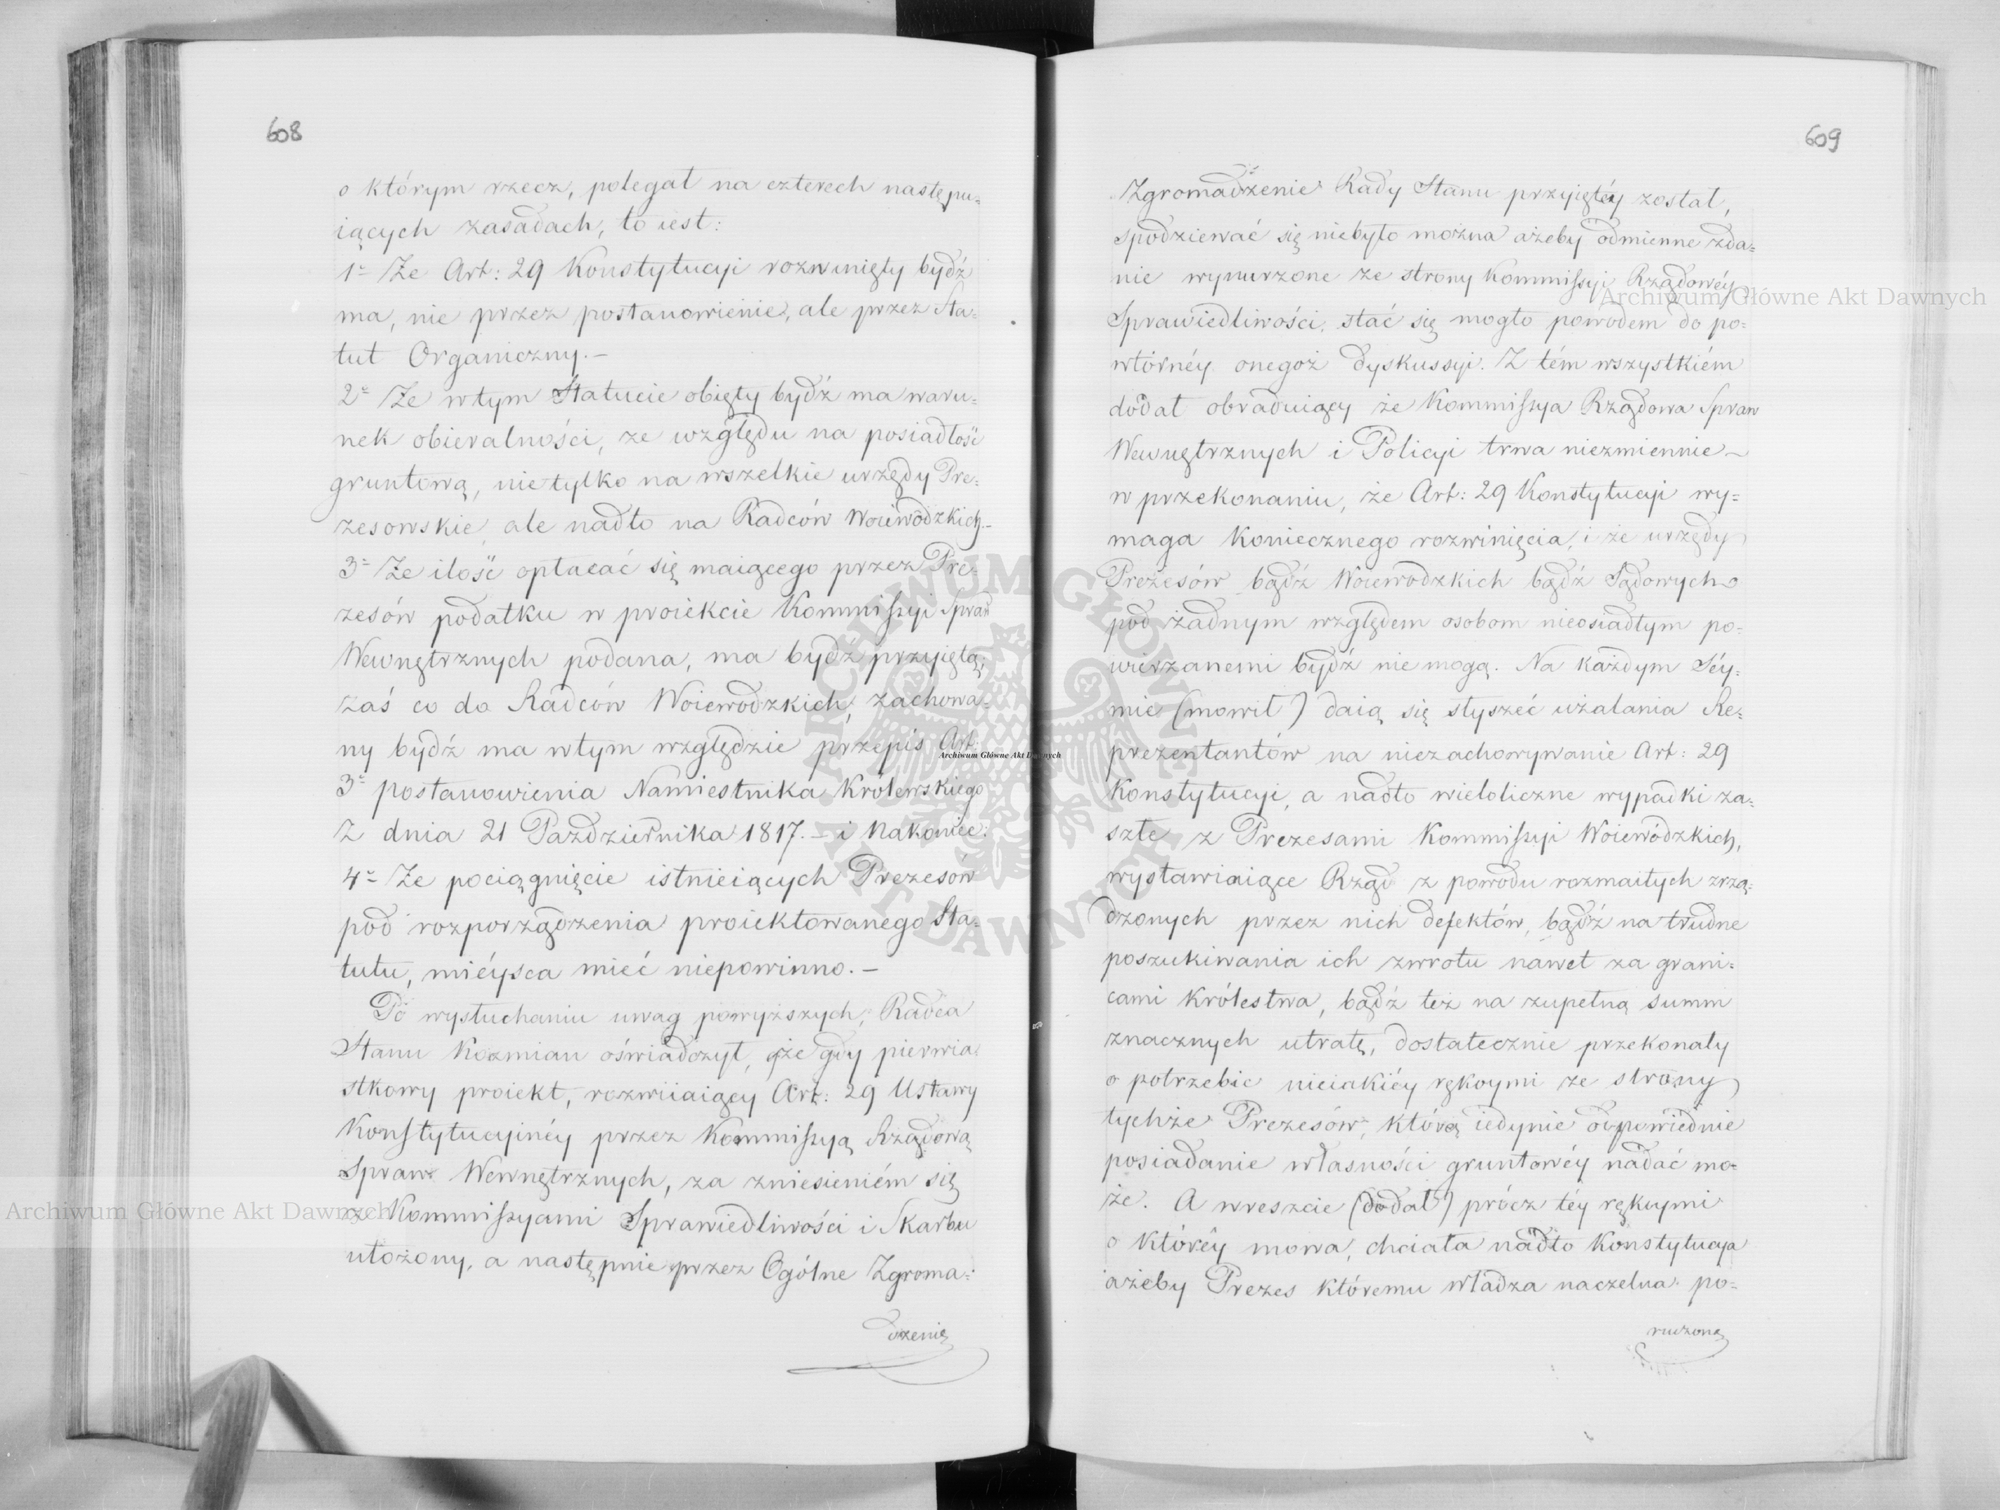 608
o którym rzecz, polegał na czterech następu-
iących zasadach, to iest:
1º Że Art: 29 Konstytucyi rozwinięty bydź
ma, nie przez postanowienie, ale przez Sta-
tut Organiczny.—
2º Że w tym Statucie obięty bydź ma waru-
nek obieralności, ze względu na posiadłość
gruntową, nietylko na wszelkie urzędy Pre-
zesowskie, ale nadto na Radców Woiewódzkich.—
3º Że ilość opłacać się maiącego przez Pre-
zesów podatku w proiekcie Kommissyi Spraw
Wewnętrznych podana, ma bydź przyiętą;
zaś co do Radców Woiewodzkich, zachowa-
ny bydź ma wtym względzie przepis Art:
3º postanowienia Namiestnika Królewskiego
z dnia 21 Pazdziernika 1817.— i nakoniec:
4º Że pociągnięcie istnieiących Prezesów
pod rozporządzenia proiektowanego Sta-
tutu, mieysca mieć niepowinno.—
Po wysłuchaniu uwag powyższych, Radca
Stanu Kozmian oświadczył, że gdy pierwia-
stkowy proiekt, rozwiiaiący Art: 29 Ustawy
Konstytucyinéy przez Kommissyą Rządową
Spraw Wewnętrznych, za zniesieniém się
z Kommissyami Sprawiedliwości i Skarbu
ułożony, a następnie przez Ogólne Zgroma-
dzenie
609
Zgromadzenie Rady Stanu przyięty został,
spodziewać się niebyło można ażeby odmienne zda-
nie wynurzone ze strony Kommissyi Rządowéy
Sprawiedliwości, stać się mogło powodem do po-
wtórnéy onegoż dyskussyi. Z tém wszystkiém
dodał obraduiący że Kommissya Rządowa Spraw
Wewnętrznych i Policyi trwa niezmiennie—
w przekonaniu, że Art: 29 Konstytucyi wy-
maga koniecznego rozwinięcia, i że urzędy
Prezesów bądź Woiewodzkich bądź Sądowych
pod żadnym względem osobom nieosiadłym po-
wierzanemi bydź nie mogą. Na każdym Séy-
mie (mowił) daią się słyszéć użalania Re-
prezentantów na niezachowywanie Art: 29
Konstytucyi, a nadto wieloliczne wypadki za-
szłe z Prezesami Kommissyi Woiewódzkich,
wystawiaiące Rząd z powodu rozmaitych zrzą-
dzonych przez nich defektów, bądź na trudne
poszukiwania ich zwrotu nawet za grani-
cami Królestwa, bądź też na zupełną summ
znacznych utratę, dostatecznie przekonały
o potrzebie nieiakiéy rękoymi ze strony
tychże Prezesów, którą iedynie odpowiednie
posiadanie własności gruntowéy nadać mo-
że. A wreszcie (dodał) prócz téy rękoymi
o któréy mowa, chciała nadto Konstytucya
ażeby Prezes któremu władza naczelna po-
ruczona
Archiwum Główne Akt Dawnych
Archiwum Główne Akt Dawnych
Archiwum Główne Akt Dawnych
ARCHIWUM GŁÓWNE AKT DAWNYCH